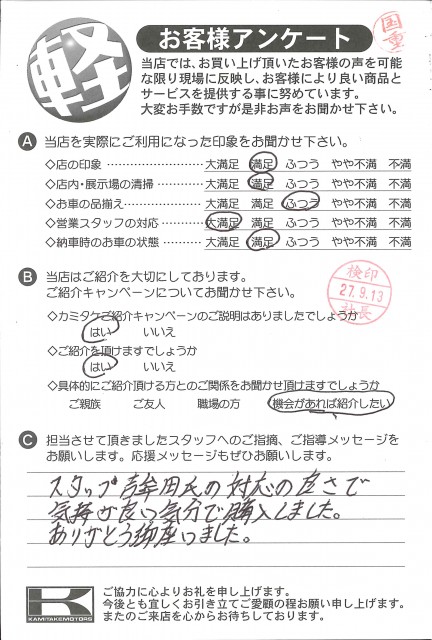 軽
お客様アンケート
当店では、お買い上げ頂いたお客様の声を可能
な限り現場に反映し、お客様により良い商品と
サービスを提供する事に努めています。
大変お手数ですが是非お声をお聞かせ下さい。
A 当店を実際にご利用になった印象をお聞かせ下さい。
◇店の印象 大満足 満足 ふつう やや不満 不満
◇店内・展示場の清掃 大満足 満足 ふつう やや不満 不満
◇お車の品揃え 大満足 満足 ふつう やや不満 不満
◇営業スタッフの対応 大満足 満足 ふつう やや不満 不満
◇納車時のお車の状態 大満足 満足 ふつう やや不満 不満
B 当店はご紹介を大切にしております。
ご紹介キャンペーンについてお聞かせ下さい。
検印
27.9.13
社長
◇カミタケご紹介キャンペーンのご説明はありましたでしょうか
はい いいえ
◇ご紹介を頂けますでしょうか
はい いいえ
◇具体的にご紹介頂ける方とのご関係をお聞かせ頂けますでしょうか
ご親族 ご友人 職場の方 機会があれば紹介したい
C 担当させて頂きましたスタッフへのご指摘、ご指導メッセージを
お願いします。応援メッセージもぜひお願いします。
スタッフ 田氏の対応の良さで
気持が良い気分で購入しました。
ありがとう御座いました。
K
KAMITAKEMOTORS
ご協力に心よりお礼を申し上げます。
今後とも宜しくお引き立てご愛顧の程お願い申し上げます。
またのご来店を心からお待ちしております。